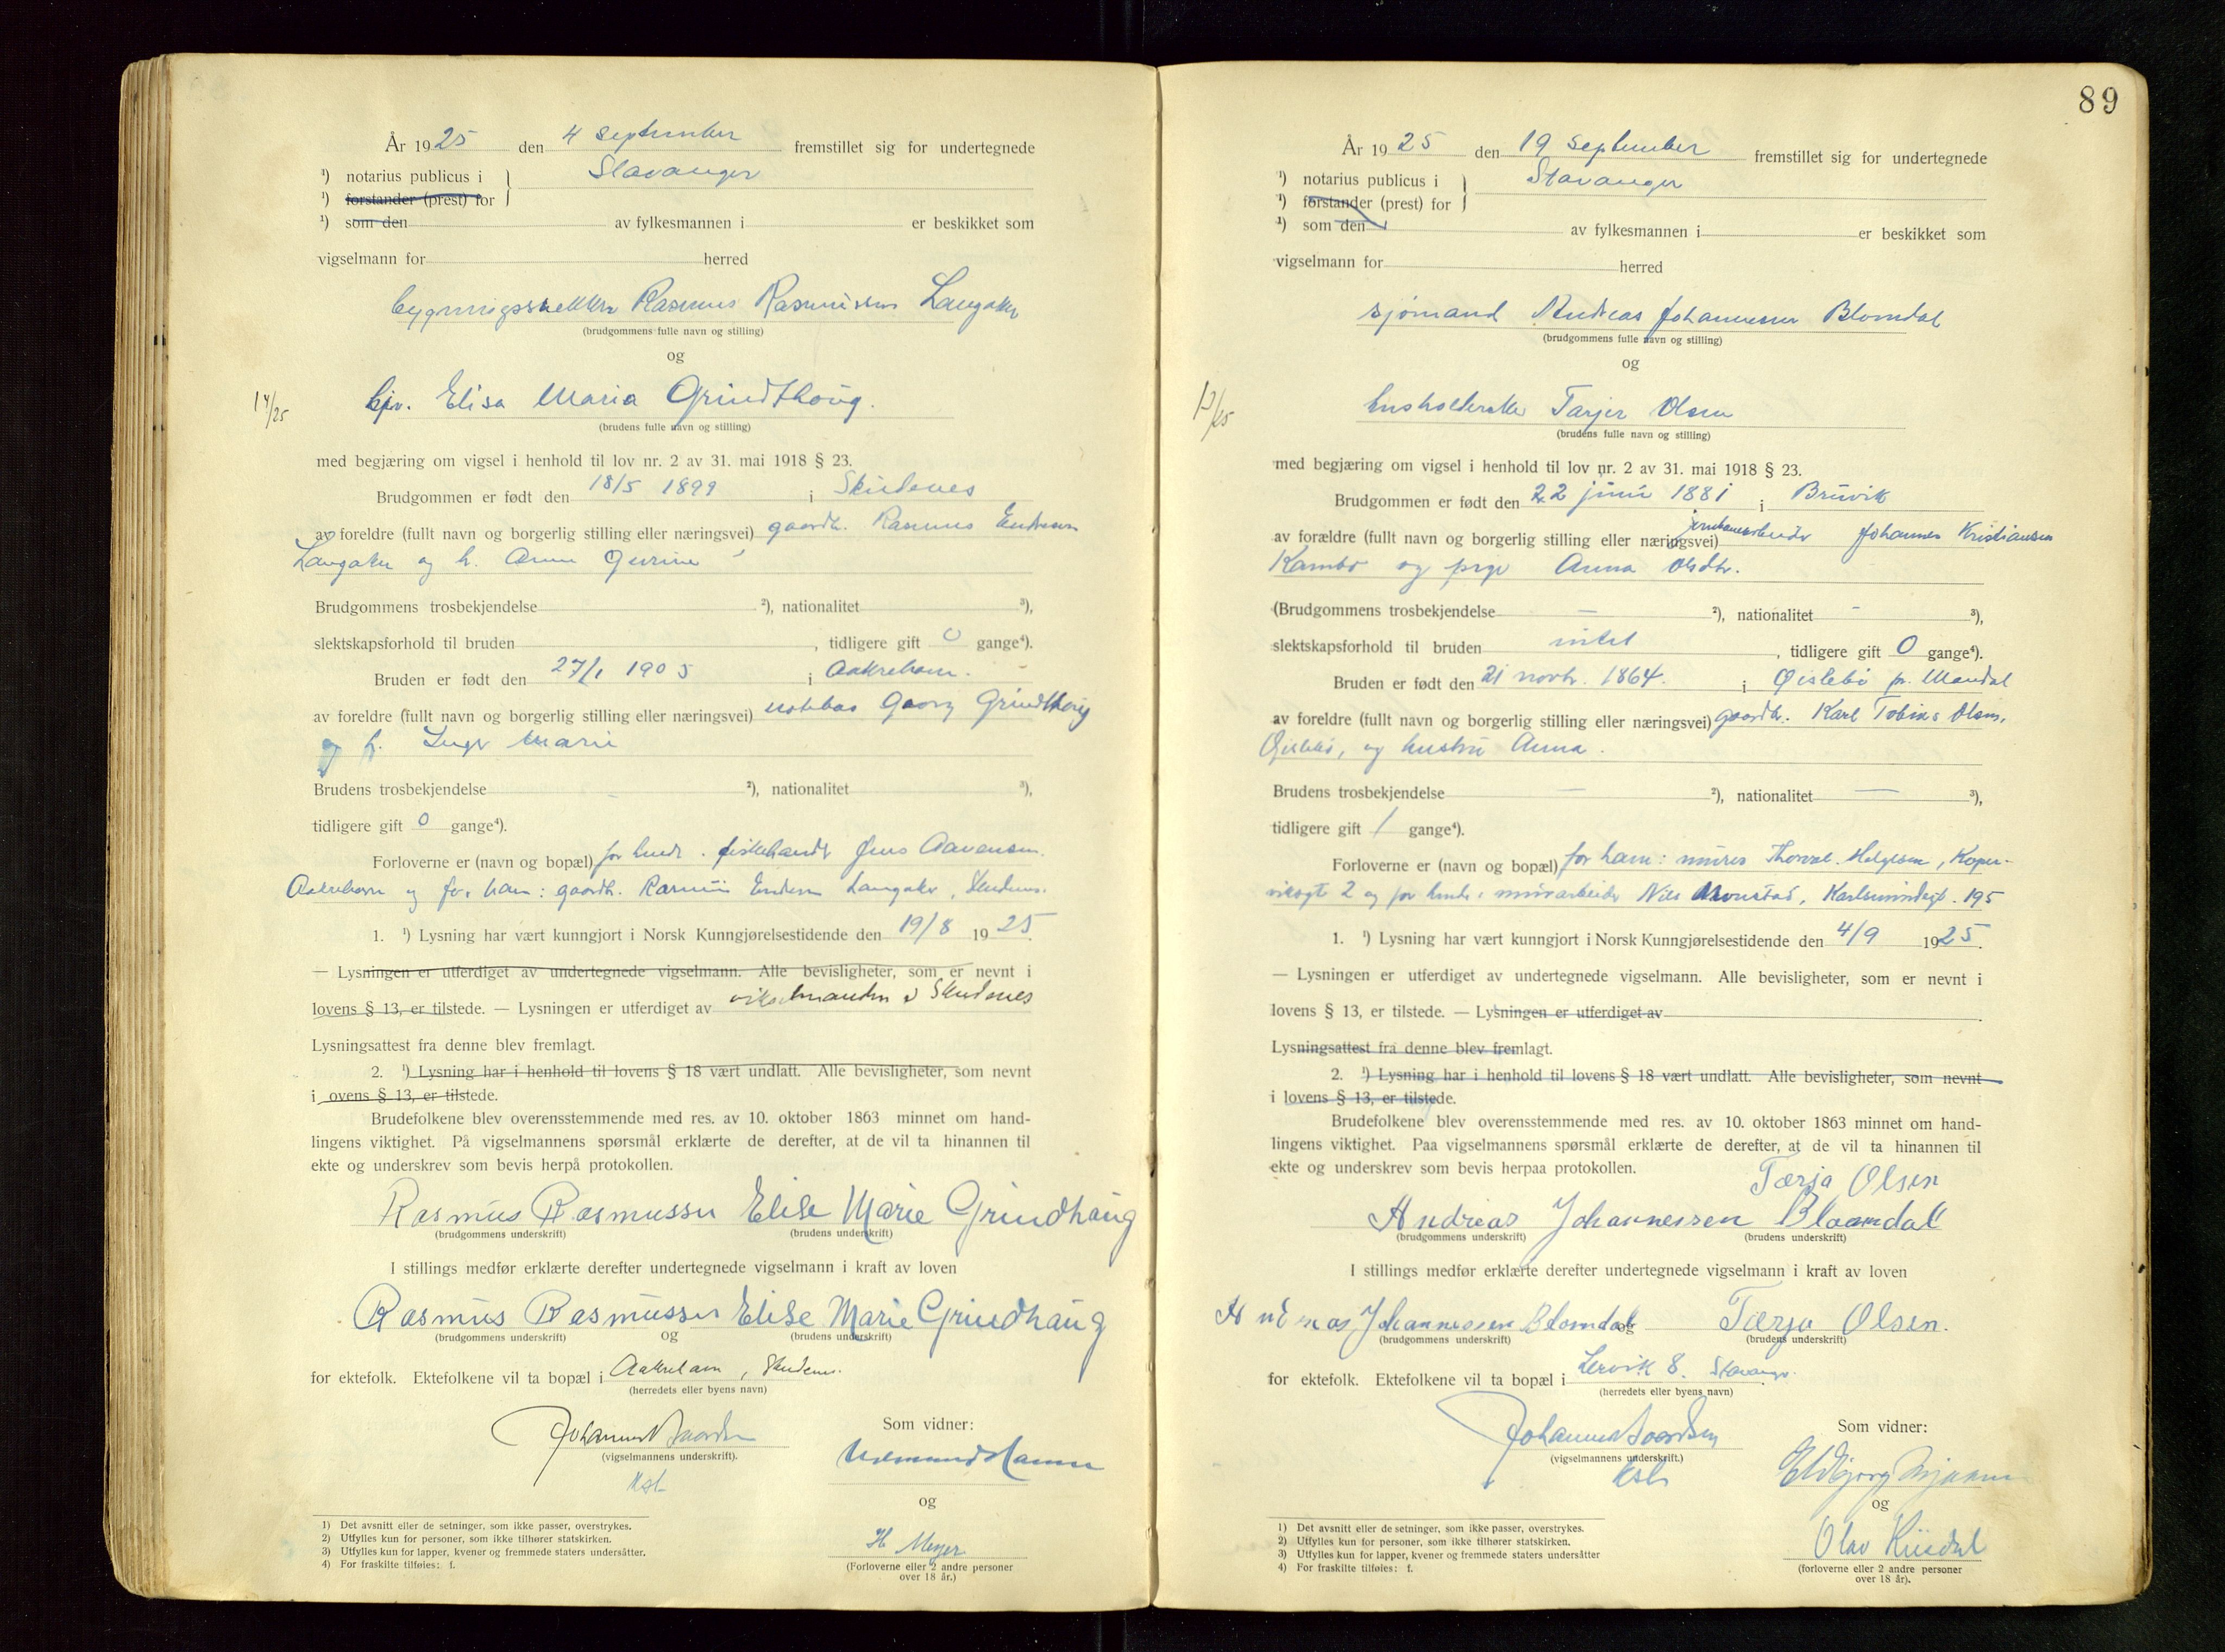 År 1925 den 4 september fremstillet sig for undertegnede
¹) notarius publicus i } Stavanger
¹) forstander (prest) for
¹) som den av fylkesmannen i er beskikket som
vigselmann for herred
bygningssnekker Rasmus Rasmussen Langaker
(brudgommens fulle navn og stilling)
og
14/25
Elisa Maria Grindthoug.
(brudens fulle navn og stilling)
med begjæring om vigsel i henhold til lov nr. 2 av 31. mai 1918 § 23.
Brudgommen er født den 18/5 1899 i Skudenes
av foreldre (fullt navn og borgerlig stilling eller næringsvei) gaardbr. Rasmus Endresen
Langaker og h. Anne Gurine
Brudgommens trosbekjendelse ²), nationalitet ³),
slektskapsforhold til bruden , tidligere gift 0 gange⁴).
Bruden er født den 27/1 1905 i Aakrehavn.
av foreldre (fullt navn og borgerlig stilling eller næringsvei) notebas Georg Grindthoug
og h. Inger Marie
Brudens trosbekjendelse ²), nationalitet ³),
tidligere gift 0 gange⁴).
Forloverne er (navn og bopæl) for hende. fiskehandler Jens Aavensen.
Aakrehavn og for ham: gaardb. Rasmus Endresen Langaker, Skudenes.
1. ¹) Lysning har vært kunngjort i Norsk Kunngjørelsestidende den 19/8 1925.
— Lysningen er utferdiget av undertegnede vigselmann. Alle bevisligheter, som er nevnt i
lovens § 13, er tilstede. — Lysningen er utferdiget av vikselmanden i Skudenes
Lysningsattest fra denne blev fremlagt.
2. ¹) Lysning har i henhold til lovens § 18 vært undlatt. Alle bevisligheter, som nevnt
i ovens § 13, er tilstede.
Brudefolkene blev overensstemmende med res. av 10. oktober 1863 minnet om hand-
lingens viktighet. På vigselmannens spørsmål erklærte de derefter, at de vil ta hinannen til
ekte og underskrev som bevis herpå protokollen.
Rasmus Rasmussen Elise Marie Grindhaug
(brudgommens underskrift) (brudens underskrift)
I stillings medfør erklærte derefter undertegnede vigselmann i kraft av loven
Rasmus Rasmussen Elise Marie Grindhaug
(brudgommens underskrift) og (brudens underskrift)
for ektefolk. Ektefolkene vil ta bopæl i Aakrehavn, Skudenes.
(herredets eller byens navn)
Som vidner:
(vigselmannens underskrift).
og
H Meyer
(Forloverne eller 2 andre personer
over 18 år.)
1) Det avsnitt eller de setninger, som ikke passer, overstrykes.
2) Utfylles kun for personer, som ikke tilhører statskirken.
3) Utfylles kun for lapper, kvener og fremmede staters undersåtter.
4) For fraskilte tilføies: f.
89
År 1925 den 19 september fremstillet sig for undertegnede
¹) notarius publicus i } Stavanger
¹) forstander (prest) for
¹) som den av fylkesmannen i er beskikket som
vigselmann for herred
sjømand Andreas Johannessen Blomdal
(brudgommens fulle navn og stilling)
og
husholderske Tarjer Olsen
(brudens fulle navn og stilling)
med begjæring om vigsel i henhold til lov nr. 2 av 31. mai 1918 § 23.
Brudgommen er født den 22 juni 1881 i Bruvik
av forældre (fullt navn og borgerlig stilling eller næringsvei) jernbanearbeider Johannes Kristiansen
Kambo og pige Anna Olsdtr.
(Brudgommens trosbekjendelse — ²), nationalitet - ³),
slektskapsforhold til bruden intet , tidligere gift 0 gange⁴).
Bruden er født den 21 novbr. 1864. i Øislebø pr. Mandal
av foreldre (fullt navn og borgerlig stilling eller næringsvei) gaardbr. Karl Tobias Olsen,
Øislebø, og hustru Anna.
Brudens trosbekjendelse — ²), nationalitet — ³),
tidligere gift 1 gange⁴).
Forloverne er (navn og bopæl) for ham: murer Thorval Helgesen, Koper-
vikgt 2 og for hende: murarbeider Nils , Karlsminnegt. 195
1. ¹) Lysning har vært kunngjort i Norsk Kunngjørelsestidende den 4/9 1925.
— Lysningen er utferdiget av undertegnede vigselmann. Alle bevisligheter, som er nevnt i
lovens § 13, er tilstede. — Lysningen er utferdiget av
Lysningsattest fra denne blev fremlagt.
2. ¹) Lysning har i henhold til lovens § 18 vært undlatt. Alle bevisligheter, som nevnt
i lovens § 13, er tilstede.
Brudefolkene blev overensstemmende med res. av 10. oktober 1863 minnet om hand-
lingens viktighet. Paa vigselmannens spørsmål erklærte de derefter, at de vil ta hinannen til
ekte og underskrev som bevis herpaa protokollen.
Tærja Olsen
Andreas Johannessen Bloomdal
(brudgommens underskrift) (brudens underskrift)
I stillings medfør erklærte derefter undertegnede vigselmann i kraft av loven
Andreas Johannessen Blomdal og Tærja Olsen.
(brudgommens underskrift) (brudens underskrift)
for ektefolk. Ektefolkene vil ta bopæl i Lervik 8. Stavanger.
(herredets eller byens navn)
Som vidner:
(vigselmannens underskrift.)
og
Olav
(forloverne eller 2 andre personer
over 18 år).
1) Det avsnitt eller de setninger, som ikke passer, overstrykes.
2) Utfylles kun for personer, som ikke tilhører statskirken.
3) Utfylles kun for lapper, kvener og fremmede staters undersåtter
4) For fraskilte tilføies: f.